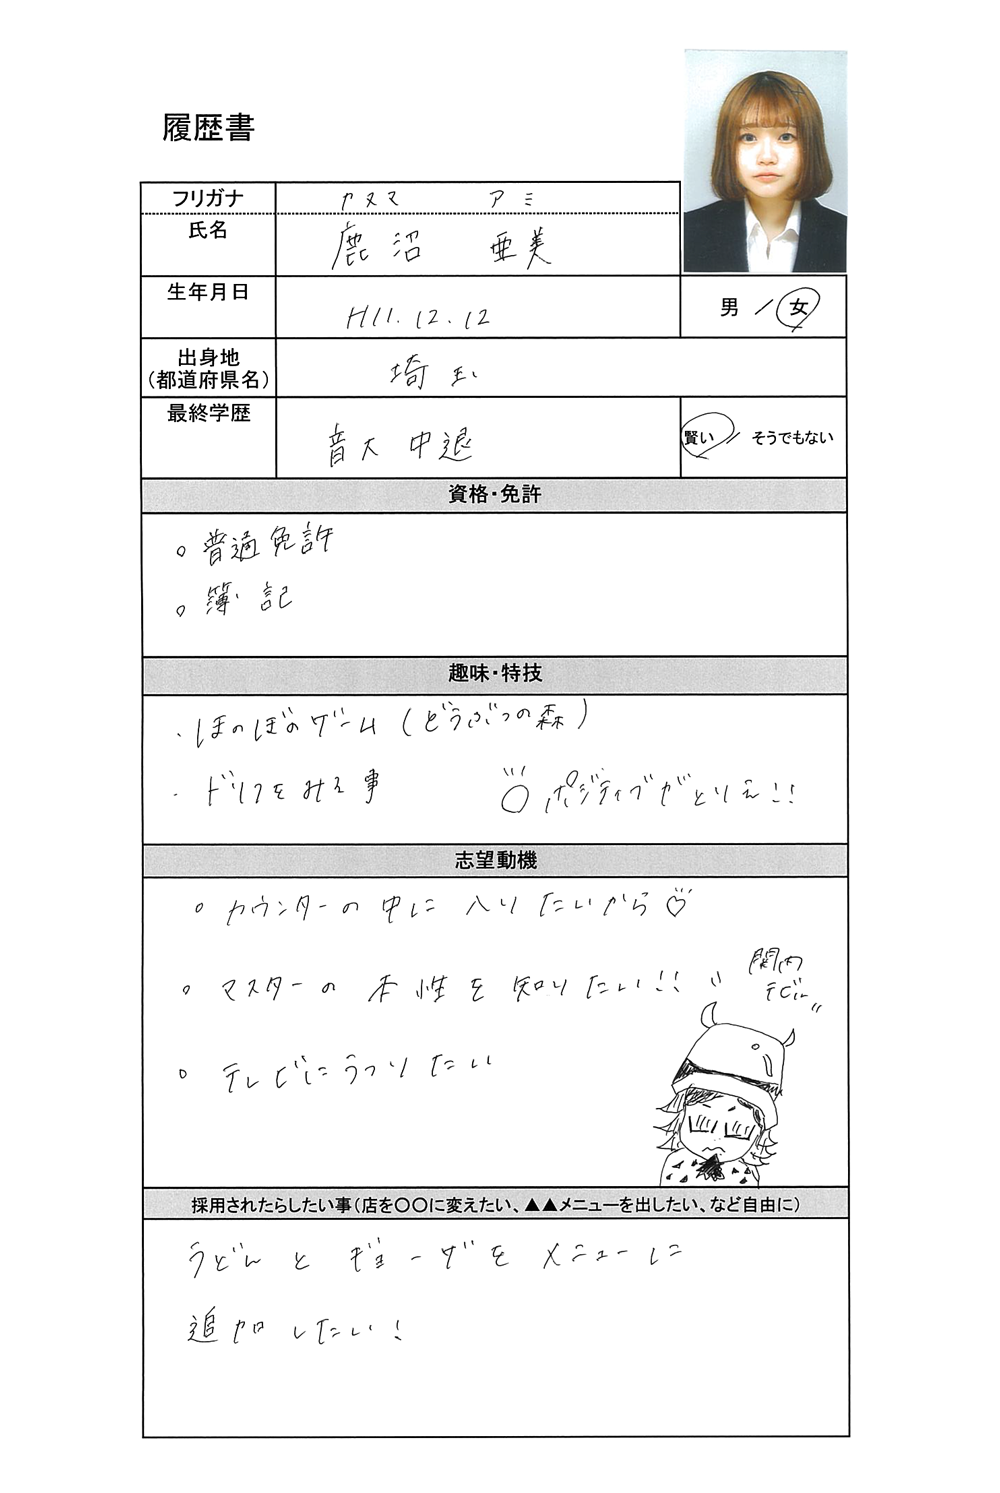 履歴書
フリガナ
カヌマ アミ
氏名
鹿沼 亜美
生年月日
H11.12.12
男 / 女
出身地
(都道府県名)
埼玉
最終学歴
音大中退
賢い / そうでもない
資格・免許
○普通免許
○簿記
趣味・特技
・ほのぼのゲーム(どうぶつの森)
・ドリフをみる事
ポジティブがとりえ!!
志望動機
○カウンターの中に入りたいから♡
○マスターの本性を知りたい!!
関内
デビル
○テレビにうつりたい
採用されたらしたい事(店を〇〇に変えたい、▲▲メニューを出したい、など自由に)
うどんとギョーザをメニューに
追加したい!